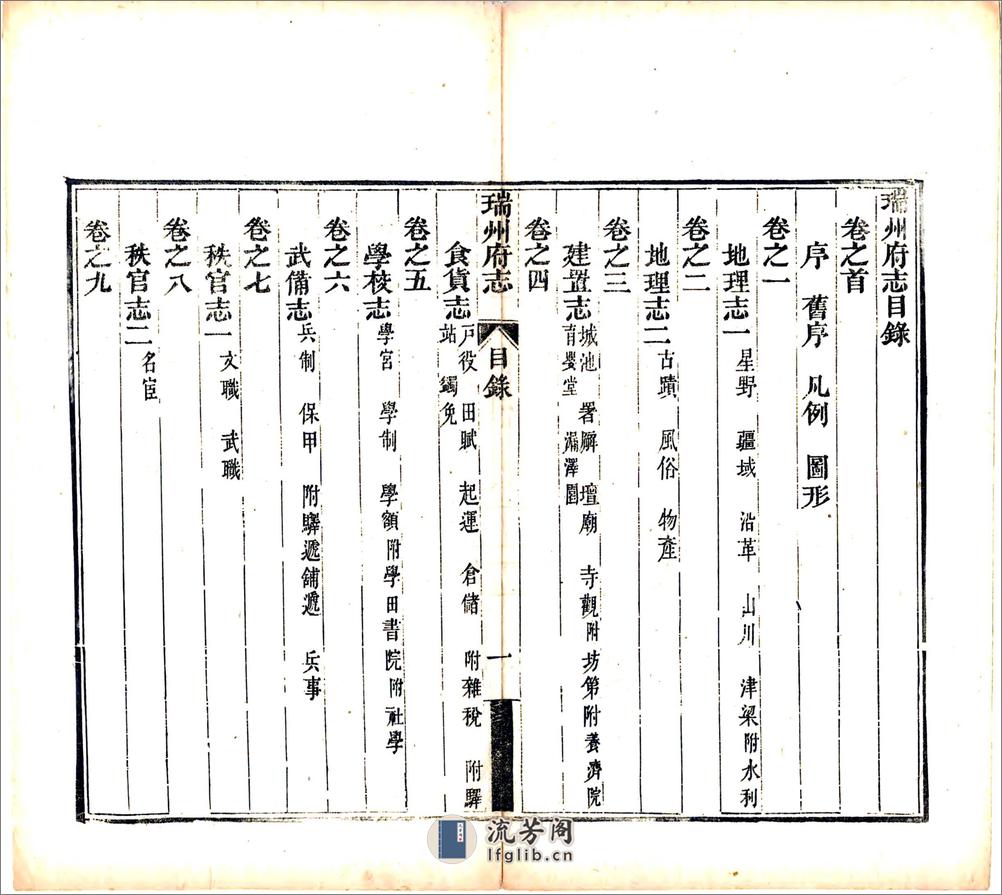 瑞州府志目錄
卷之首
序 舊序 凡例 圖形
卷之一
地理志一 星野 疆域 沿革 山川 津梁附水利
卷之二
地理志二 古蹟 風俗 物產
卷之三
建置志 城池 署廨 壇廟 寺觀附坊第附養濟院
育嬰堂 漏澤園
卷之四
瑞州府志 目錄 一
食貨志 戶役 田賦 起運 倉儲 附雜稅 附驛
站 蠲免
卷之五
學校志 學宮 學制 學額附學田書院附社學
卷之六
武備志 兵制 保甲 附驛遞舖遞 兵事
卷之七
秩官志一 文職 武職
卷之八
秩官志二 名宦
卷之九
流芳阁
lfglib.cn